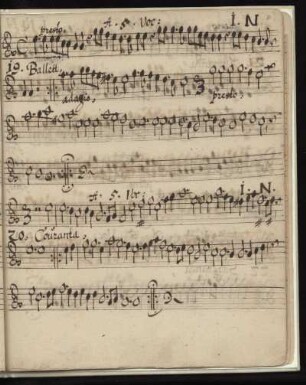 presto. A. 5. Voc: I. N
19. Ballett.
adagio, presto,
A. 5. Voc: I. N.
20. Couranta,